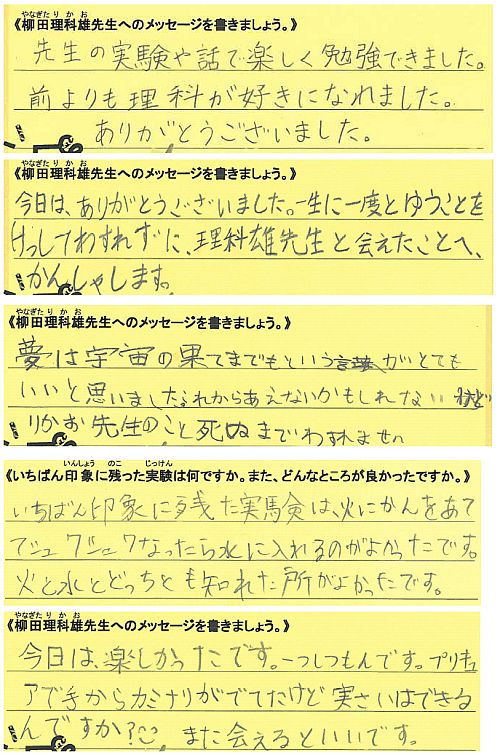 やなぎた りかお
《柳田理科雄先生へのメッセージを書きましょう。》
先生の実験や話で楽しく勉強できました。
前よりも理科が好きになれました。
ありがとうございました。
やなぎた りかお
《柳田理科雄先生へのメッセージを書きましょう。》
今日は、ありがとうございました。一生に一度とゆうことを
けっしてわすれずに、理科雄先生と会えたことへ、
かんしゃします。
やなぎた りかお
《柳田理科雄先生へのメッセージを書きましょう。》
夢は宇宙の果てまでもという言葉がとても
いいと思いました。これからあえないかもしれない
りかお先生のこと死ぬまでわすれません
いんしょう のこ じっけん
《いちばん印象に残った実験は何ですか。また、どんなところが良かったですか。》
いちばん印象に残た実験は、火にかんをあて
てジュワジュワなったら水に入れるのがよかったです。
火と水とどっちとも知れた所がよかったです。
やなぎた りかお
《柳田理科雄先生へのメッセージを書きましょう。》
今日は、楽しかったです。一つしつもんです。プリキュ
アで手からカミナリがでてたけど実さいはできる
んですか？ また会えるといいです。